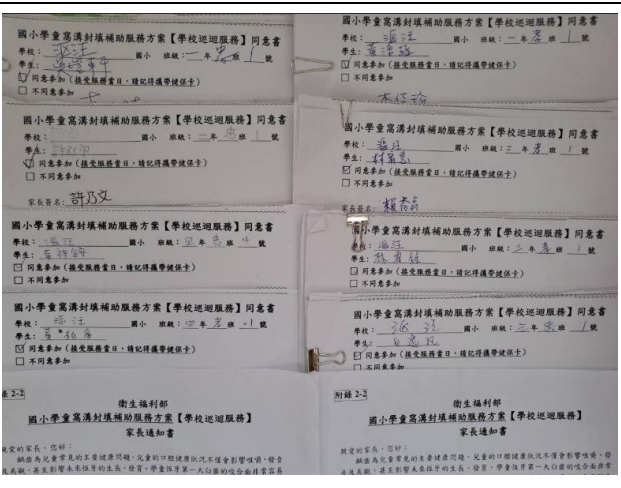 國小學童窩溝封填補助服務方案【學校巡迴服務】同意書
學校： 國小 班級：一年忠班 1 號
學生：
☑ 同意參加（接受服務當日，請記得攜帶健保卡）
☐ 不同意參加
國小學童窩溝封填補助服務方案【學校巡迴服務】同意書
學校： 國小 班級：二年忠班 1 號
學生：
☑ 同意參加（接受服務當日，請記得攜帶健保卡）
☐ 不同意參加
家長簽名：許乃文
國小學童窩溝封填補助服務方案【學校巡迴服務】同意書
學校： 國小 班級： 年 班 號
學生：
☑ 同意參加（接受服務當日，請記得攜帶健保卡）
☐ 不同意參加
國小學童窩溝封填補助服務方案【學校巡迴服務】同意書
學校： 國小 班級：四年孝班 1 號
學生：
☑ 同意參加（接受服務當日，請記得攜帶健保卡）
☐ 不同意參加
錄 2-2
衛生福利部
國小學童窩溝封填補助服務方案【學校巡迴服務】
家長通知書
親愛的家長，您好：
齲齒為兒童常見的主要健康問題，兒童的口腔健康狀況不僅會影響咀嚼、發
音及美觀，甚至影響未來恒牙的生長、發育。學童恒牙第一大臼齒的咬合面非常容易
國小學童窩溝封填補助服務方案【學校巡迴服務】同意書
學校： 國小 班級：一年孝班 1 號
學生：
☑ 同意參加（接受服務當日，請記得攜帶健保卡）
☐ 不同意參加
國小學童窩溝封填補助服務方案【學校巡迴服務】同意書
學校： 國小 班級：二年孝班 1 號
學生：
☑ 同意參加（接受服務當日，請記得攜帶健保卡）
☐ 不同意參加
家長簽名：
國小學童窩溝封填補助服務方案【學校巡迴服務】同意書
學校： 國小 班級：三年孝班 1 號
學生：
☑ 同意參加（接受服務當日，請記得攜帶健保卡）
☐ 不同意參加
國小學童窩溝封填補助服務方案【學校巡迴服務】同意書
學校： 國小 班級：三年忠班 1 號
學生：
☑ 同意參加（接受服務當日，請記得攜帶健保卡）
☐ 不同意參加
附錄 2-2
衛生福利部
國小學童窩溝封填補助服務方案【學校巡迴服務】
家長通知書
親愛的家長，您好：
齲齒為兒童常見的主要健康問題，兒童的口腔健康狀況不僅會影響咀嚼、發
音及美觀，甚至影響未來恒牙的生長、發育。學童恒牙第一大臼齒的咬合面非常容